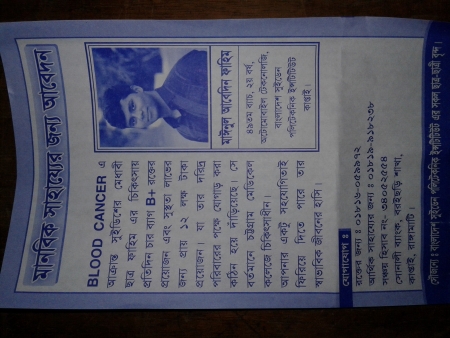 মানবিক সাহায্যের জন্য আবেদন
BLOOD CANCER এ
আক্রান্ত সুইডিশের মেধাবী
ছাত্র ফাহিম এর চিকিৎসায়
প্রতিদিন চার ব্যাগ B- রক্তের
প্রয়োজন এবং সুস্থতা লাভের
জন্য প্রায় ১২ লক্ষ টাকা
প্রয়োজন। যা তার দরিদ্র
পরিবারের পক্ষে যোগাড় করা
কঠিন হয়ে দাঁড়িয়েছে। সে
বর্তমানে চট্টগ্রাম মেডিকেল
কলেজে চিকিৎসাধীন।
আপনার একটু সহযোগিতাই
ফিরিয়ে দিতে পারে তার
স্বাভাবিক জীবনের হাসি।
মাঈনুল আবেদিন ফাহিম
৪৯তম ব্যাচ, ২য় বর্ষ,
অটোমোবাইল টেকনোলজি,
বাংলাদেশ সুইডেন
পলিটেকনিক ইন্সটিটিউট
কাপ্তাই।
যোগাযোগ :
রক্তের জন্য : ০১৮১৬-০৫৯৯৭২
আর্থিক সাহায্যের জন্য : ০১৮১৯-৯১৮২৩৮
সঞ্চয় হিসাব নং- ৩৪০৫২৫৫৪
সোনালী ব্যাংক, বরইছড়ি শাখা,
কাপ্তাই, রাঙ্গামাটি।
সৌজন্যে : বাংলাদেশ সুইডেন পলিটেকনিক ইন্সটিটিউট এর সকল ছাত্র-ছাত্রী বৃন্দ।